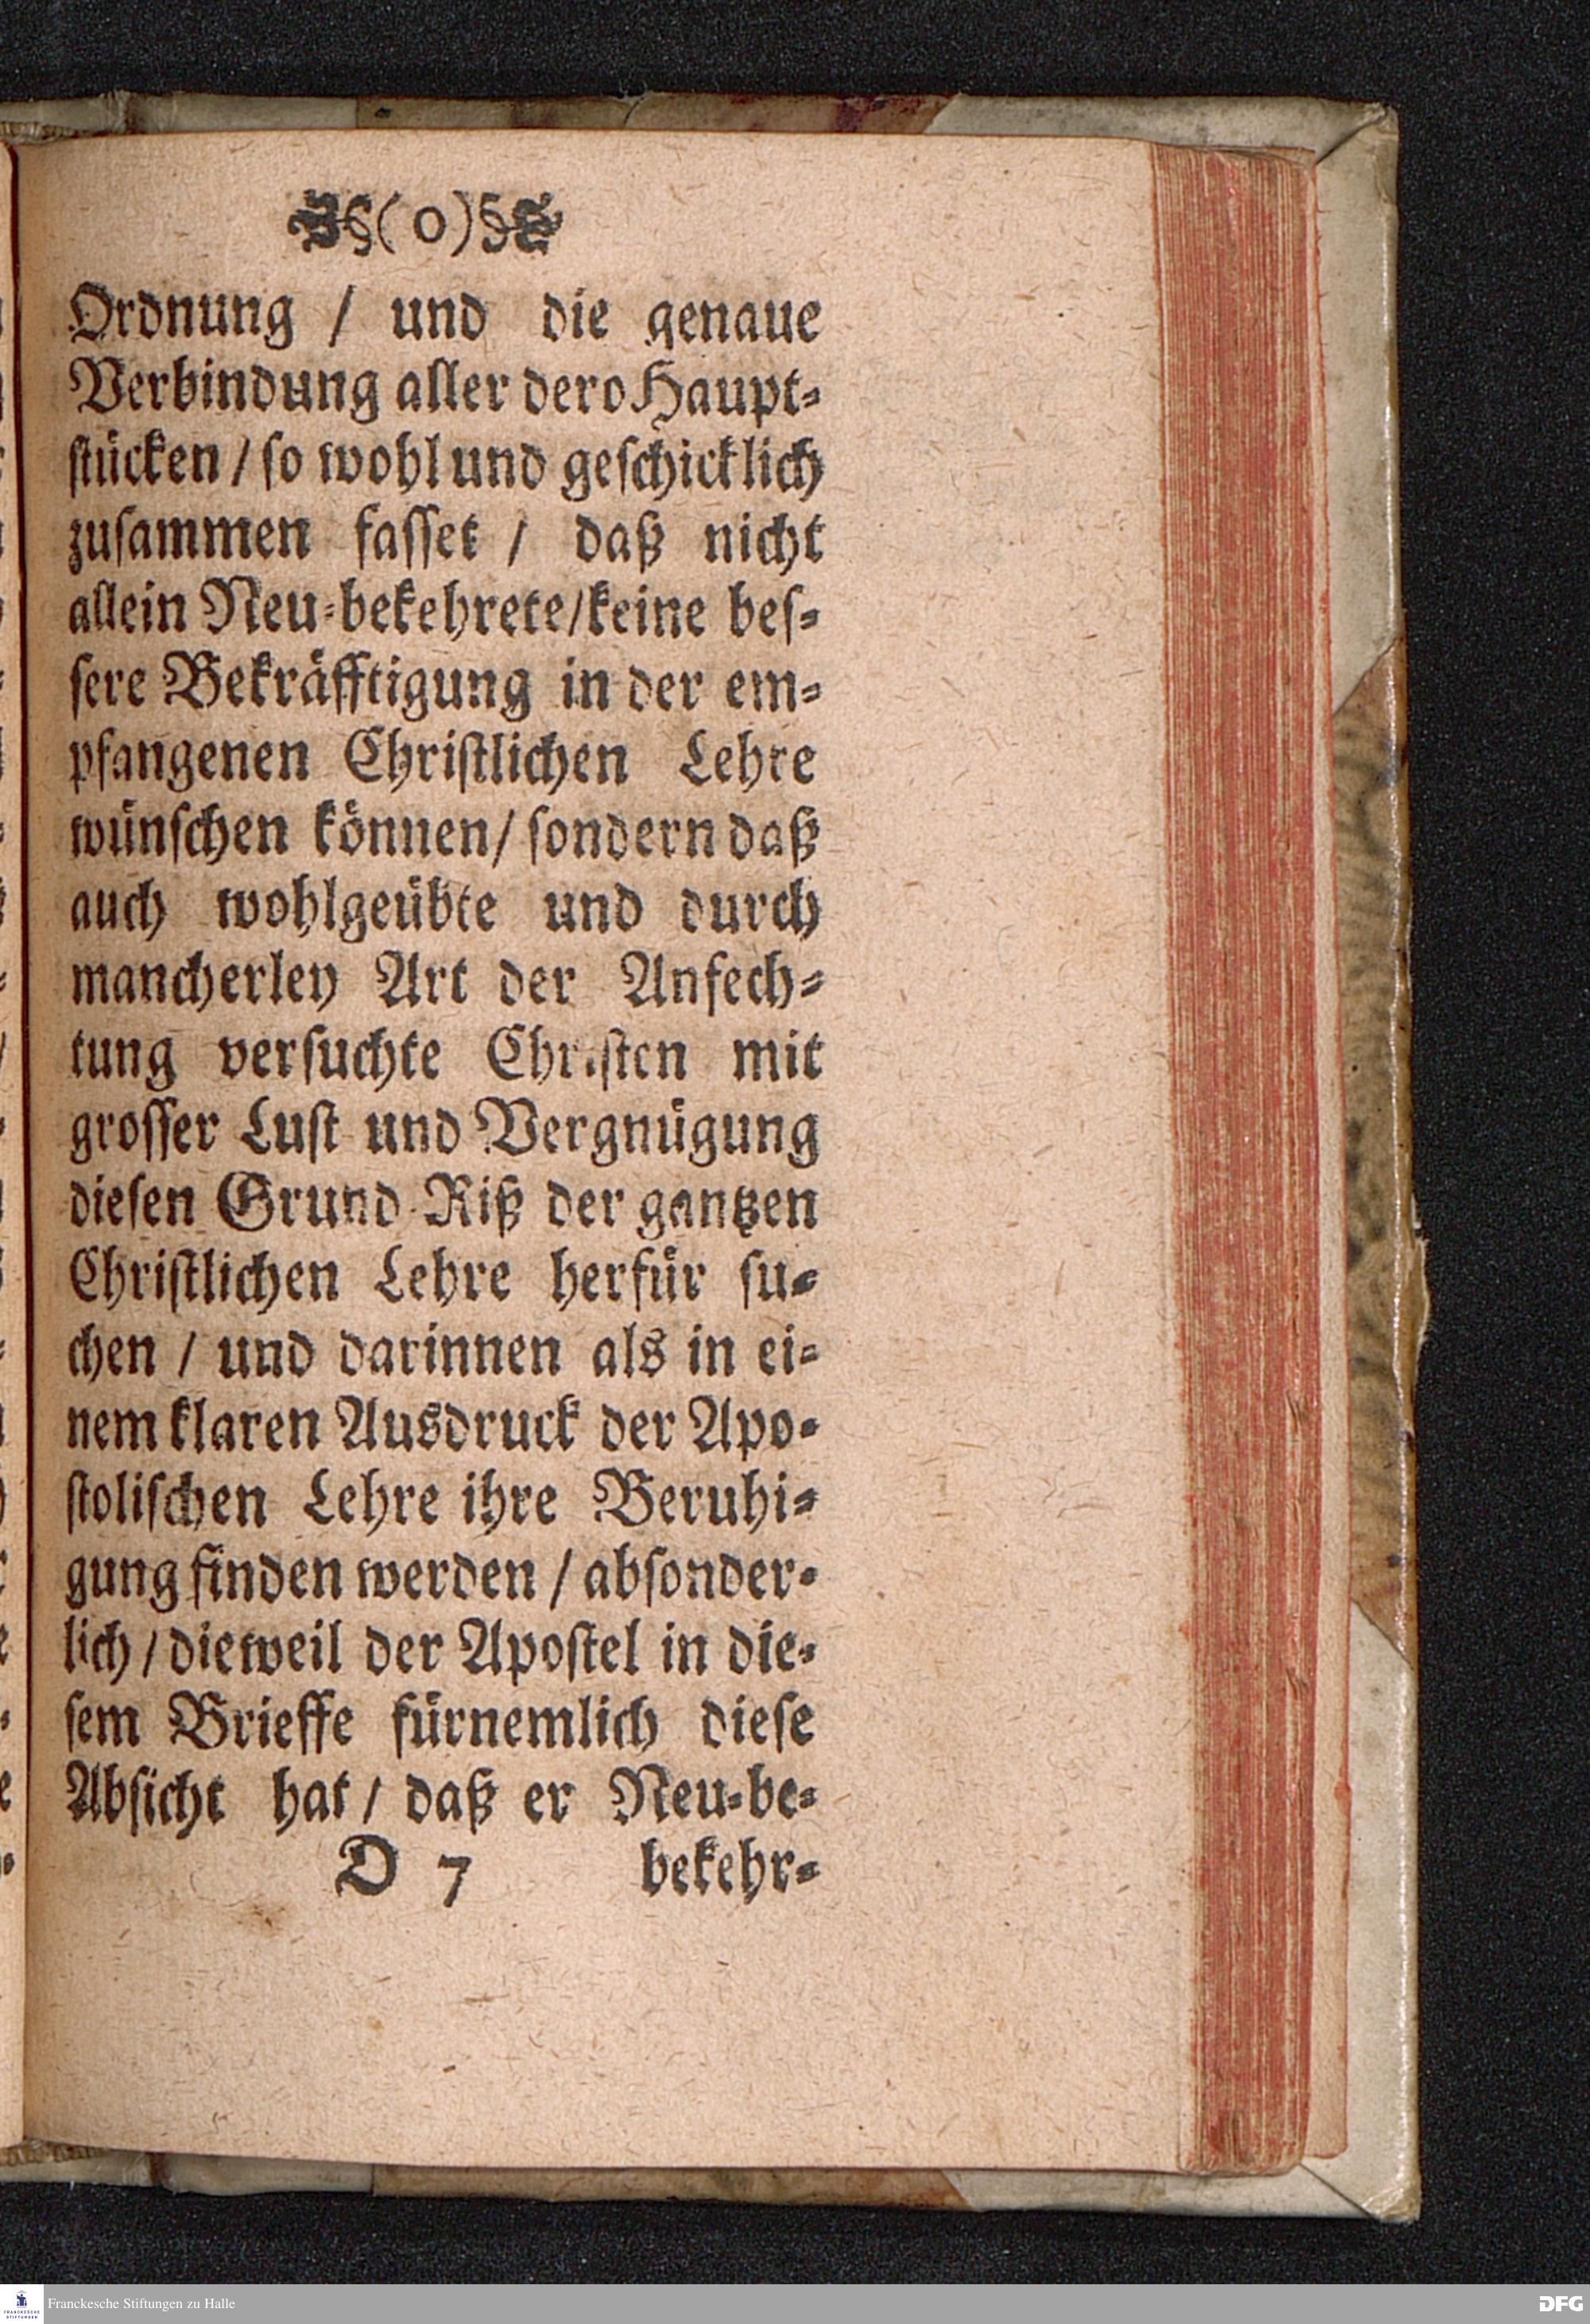 §( o )§
Ordnung / und die genaue
Verbindung aller dero Haupt⸗
ſtücken / ſo wohl und geſchicklich
zuſammen faſſet / daß nicht
allein Neu⸗bekehrete/keine beſ⸗
ſere Bekräfftigung in der em⸗
pfangenen Chriſtlichen Lehre
wünſchen können/ ſondern daß
auch wohlgeübte und durch
mancherley Art der Anfech⸗
tung verſuchte Chriſten mit
groſſer Luſt und Vergnügung
dieſen Grund Riß der gantzen
Chriſtlichen Lehre herfür ſu⸗
chen / und darinnen als in ei⸗
nem klaren Ausdruck der Apo⸗
ſtoliſchen Lehre ihre Beruhi⸗
gung finden werden / abſonder⸗
lich / dieweil der Apoſtel in die⸗
ſem Brieffe fürnemlich dieſe
Abſicht hat / daß er Neu⸗be⸗
D 7 bekehr⸗
Franckesche Stiftungen zu Halle
FRANCKESCHE STIFTUNGEN
DFG